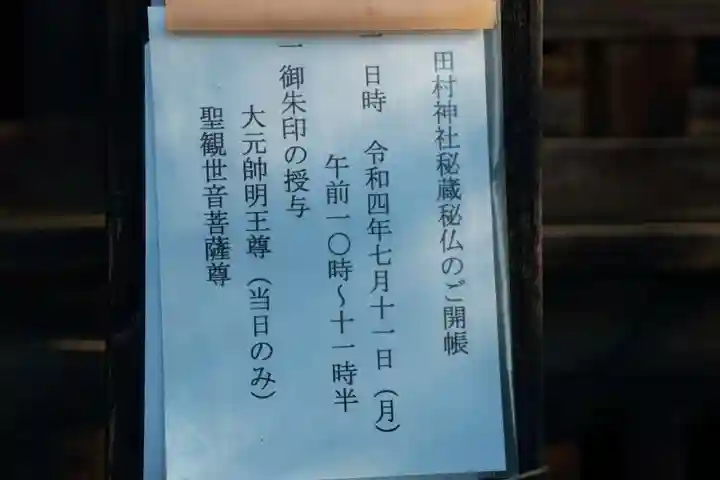 田村神社秘蔵秘仏のご開帳
一 日時 令和四年七月十一日(月)
午前一〇時~十一時半
一 御朱印の授与
大元帥明王尊(当日のみ)
聖観世音菩薩尊